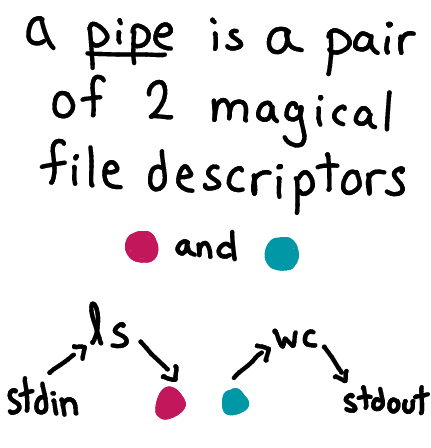 a pipe is a pair
of 2 magical
file descriptors
and
ls
wc
stdin
stdout